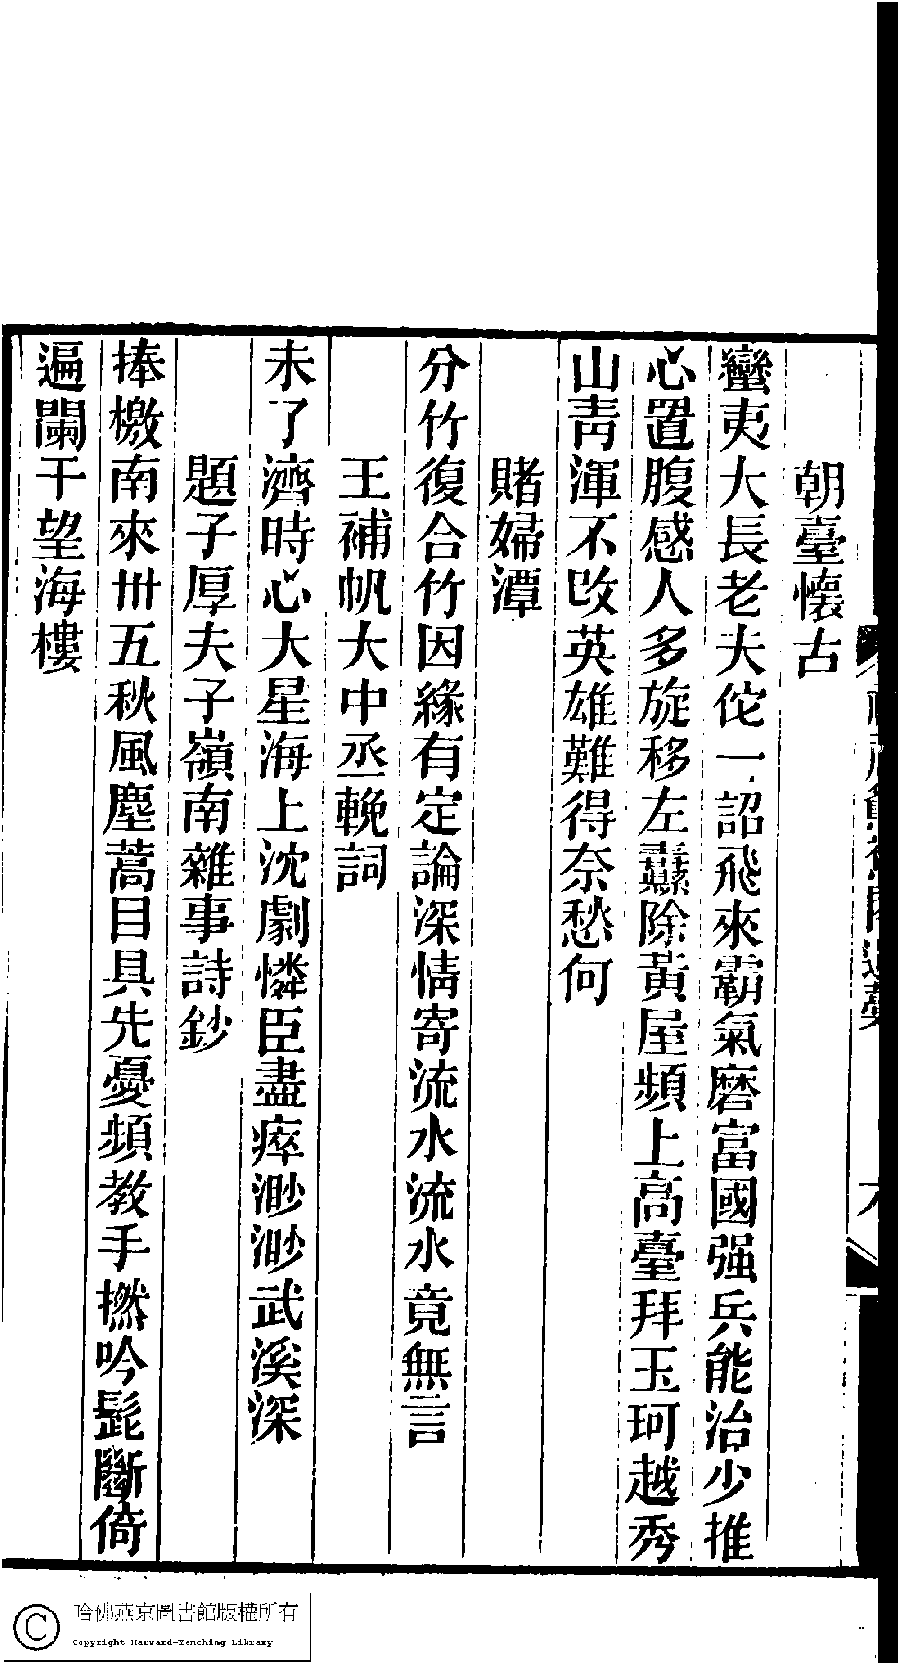 朝臺懷古
蠻夷大長老夫佗一詔飛來霸氣磨富國强兵能治少推
心置腹感人多旋移左纛除黃屋頻上高臺拜玉珂越秀
山靑渾不改英雄難得奈愁何
賭婦潭
分竹復合竹因緣有定論深情寄流水流水竟無言
王補帆大中丞輓詞
未了濟時心大星海上沈劇憐臣盡瘁渺渺武溪深
題子厚夫子嶺南雜事詩鈔
捧檄南來卅五秋風塵蒿目具先憂頻教手撚吟髭斷倚
遍闌干望海樓
哈佛燕京圖書館版權所有
Copyright Harvard-Yenching Library